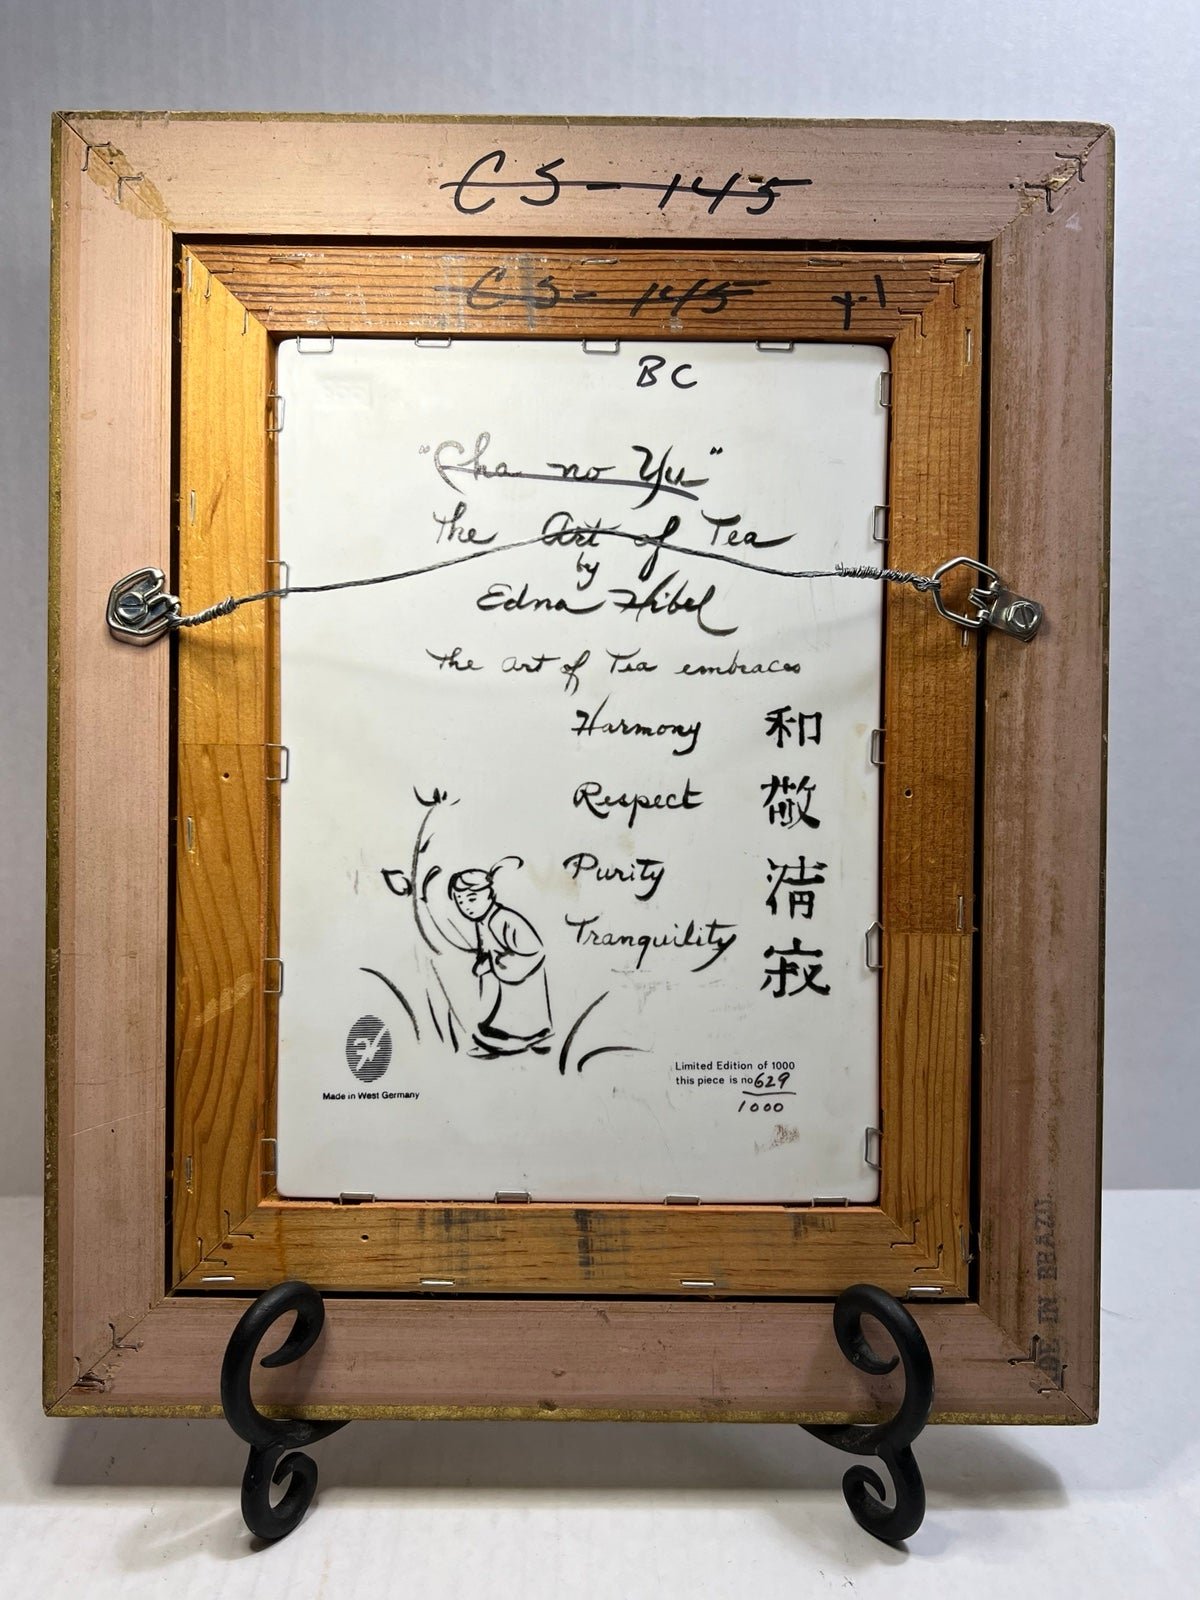 CS-145
CS-145
BC
"Cha no Yu"
The Art of Tea
by
Edna Hibel
The art of Tea embraces
Harmony 和
Respect 敬
Purity 清
Tranquility 寂
Made in West Germany
Limited Edition of 1000
this piece is no 629
1000
DE IN BRAZIL